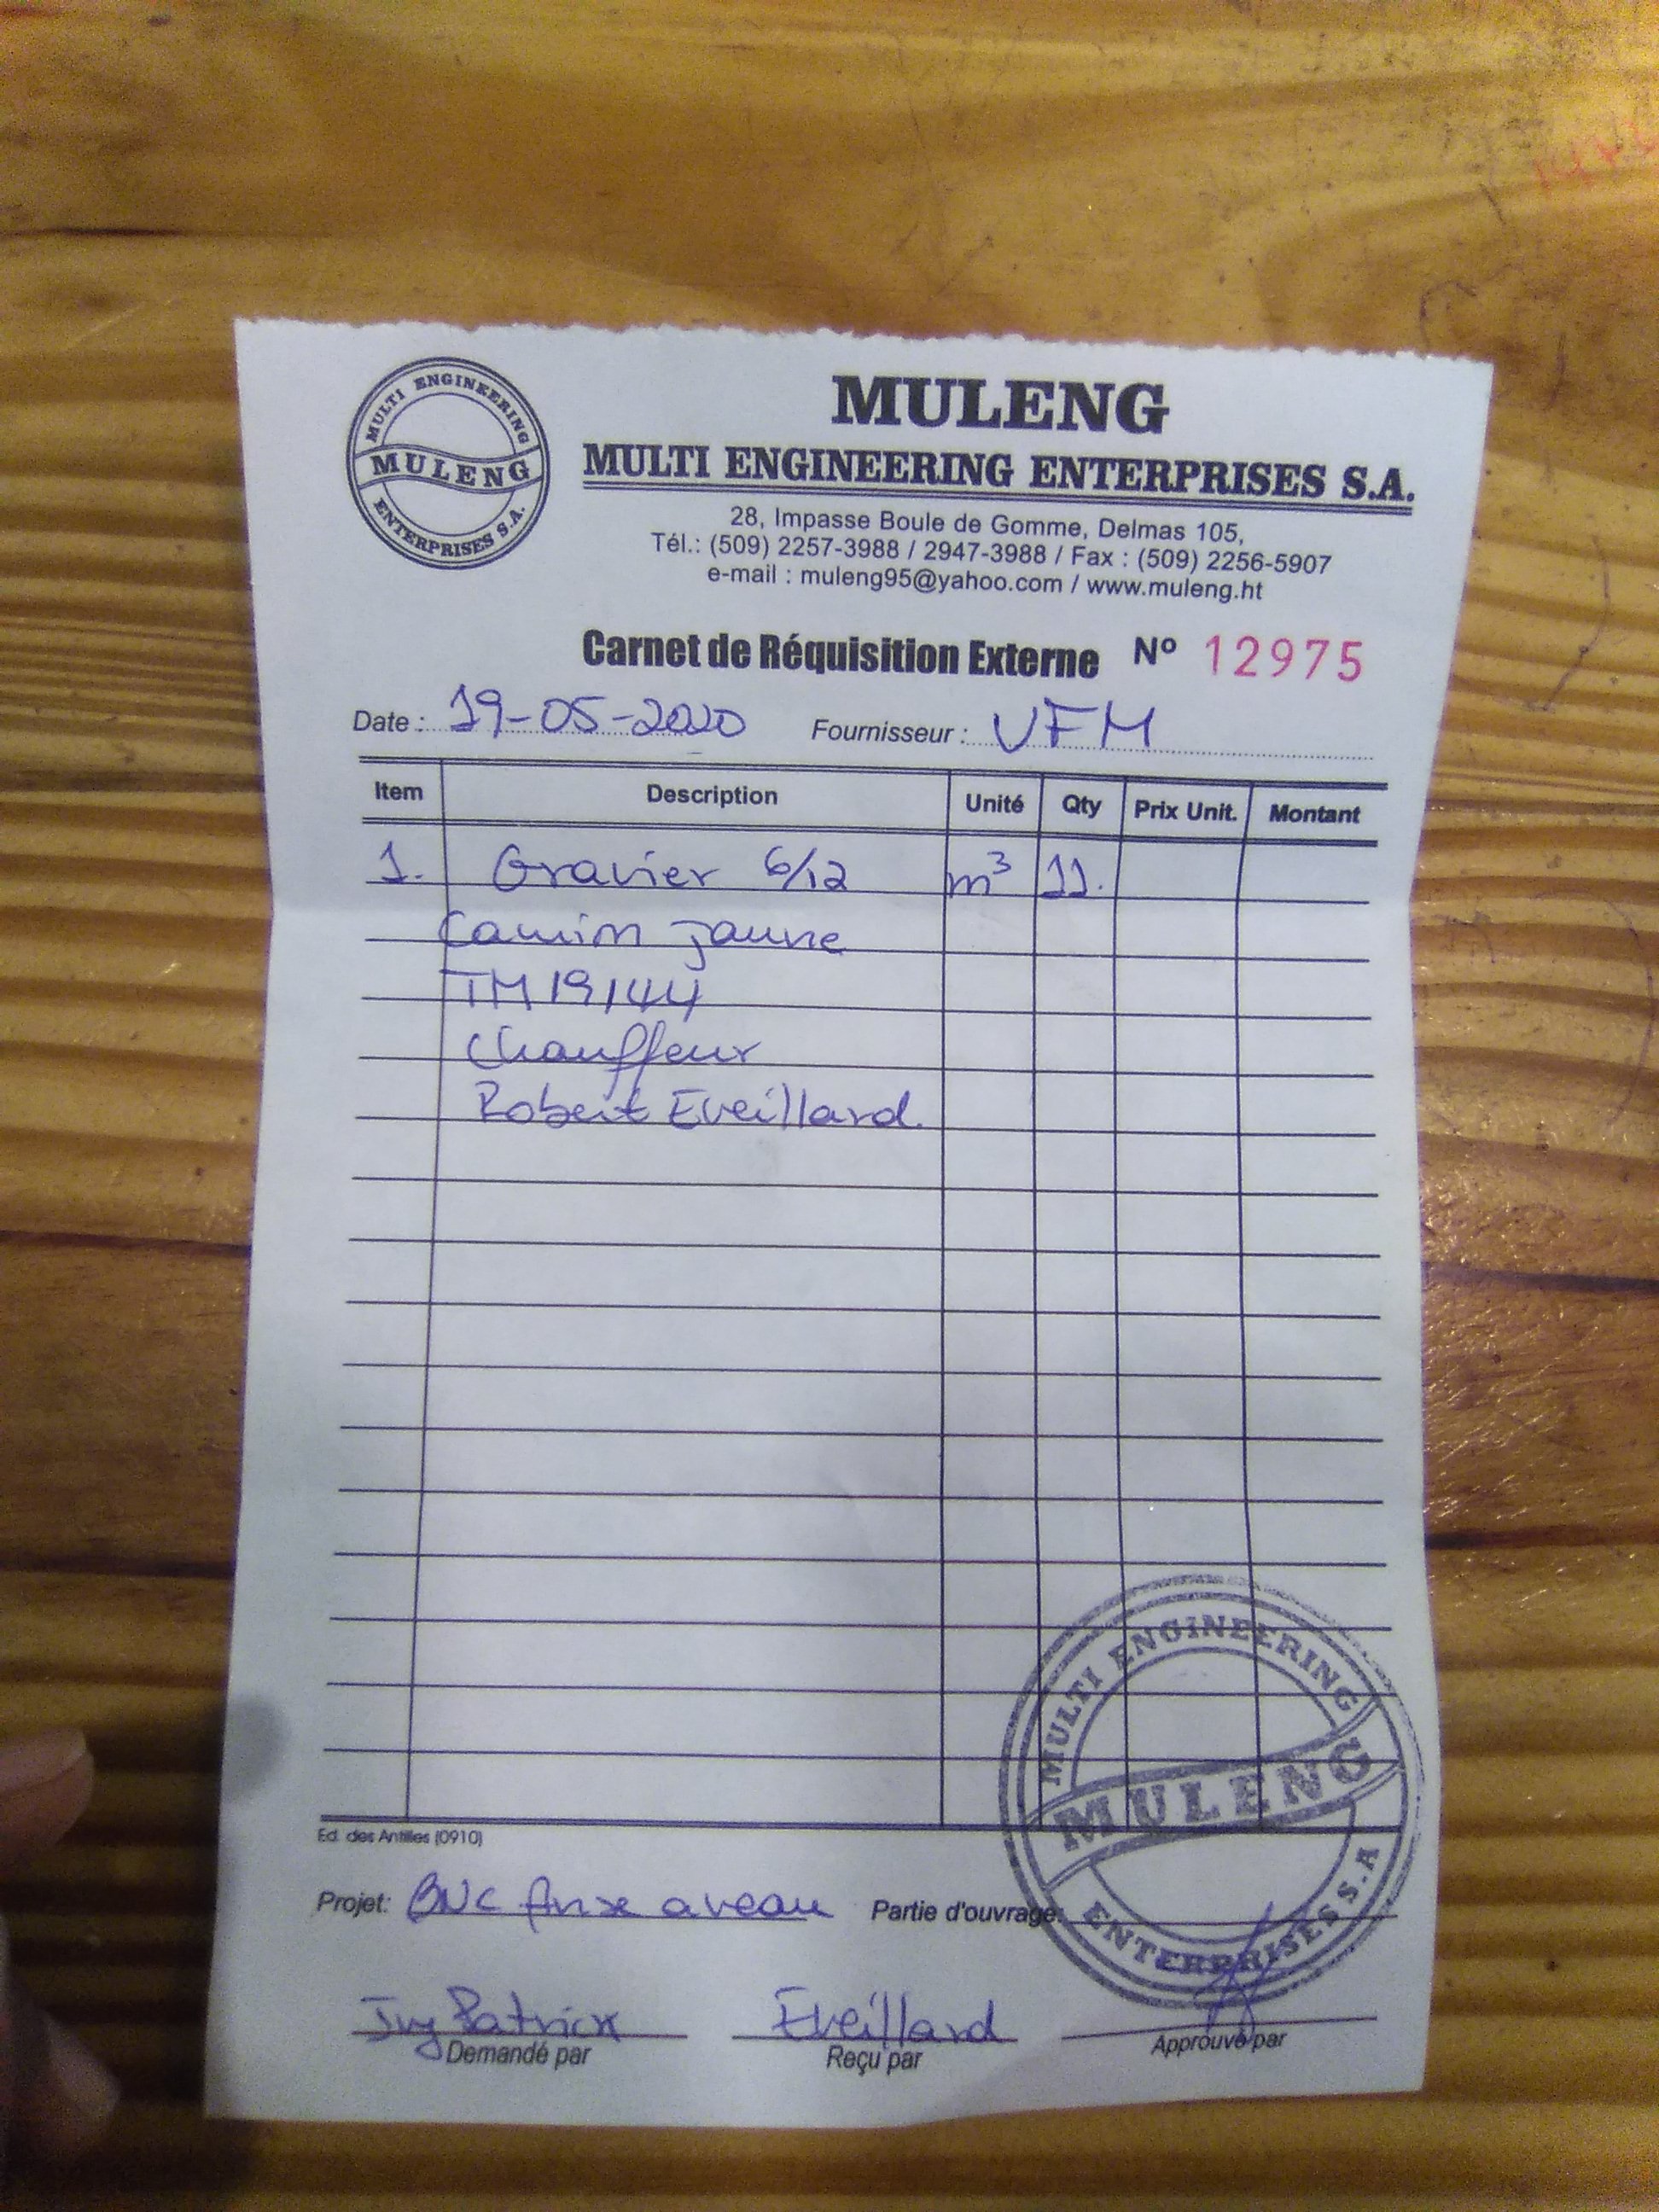 MULTI ENGINEERING
MULENG
ENTERPRISES S.A.
MULENG
MULTI ENGINEERING ENTERPRISES S.A.
28, Impasse Boule de Gomme, Delmas 105,
Tél.: (509) 2257-3988 / 2947-3988 / Fax : (509) 2256-5907
e-mail : muleng95@yahoo.com / www.muleng.ht
Carnet de Réquisition Externe Nº 12975
Date : 19-05-2020 Fournisseur : VFM
Item Description Unité Qty Prix Unit. Montant
1. Gravier 6/12 m³ 11.
Camion jaune
TM19144
Chauffeur
Robert Eveillard.
MULTI ENGINEERING
MULENG
ENTERPRISES S.A
Ed. des Antilles (0910)
Projet: BNC Anse aveau Partie d'ouvrage:
Patrick Eveillard
Demandé par Reçu par Approuvé par